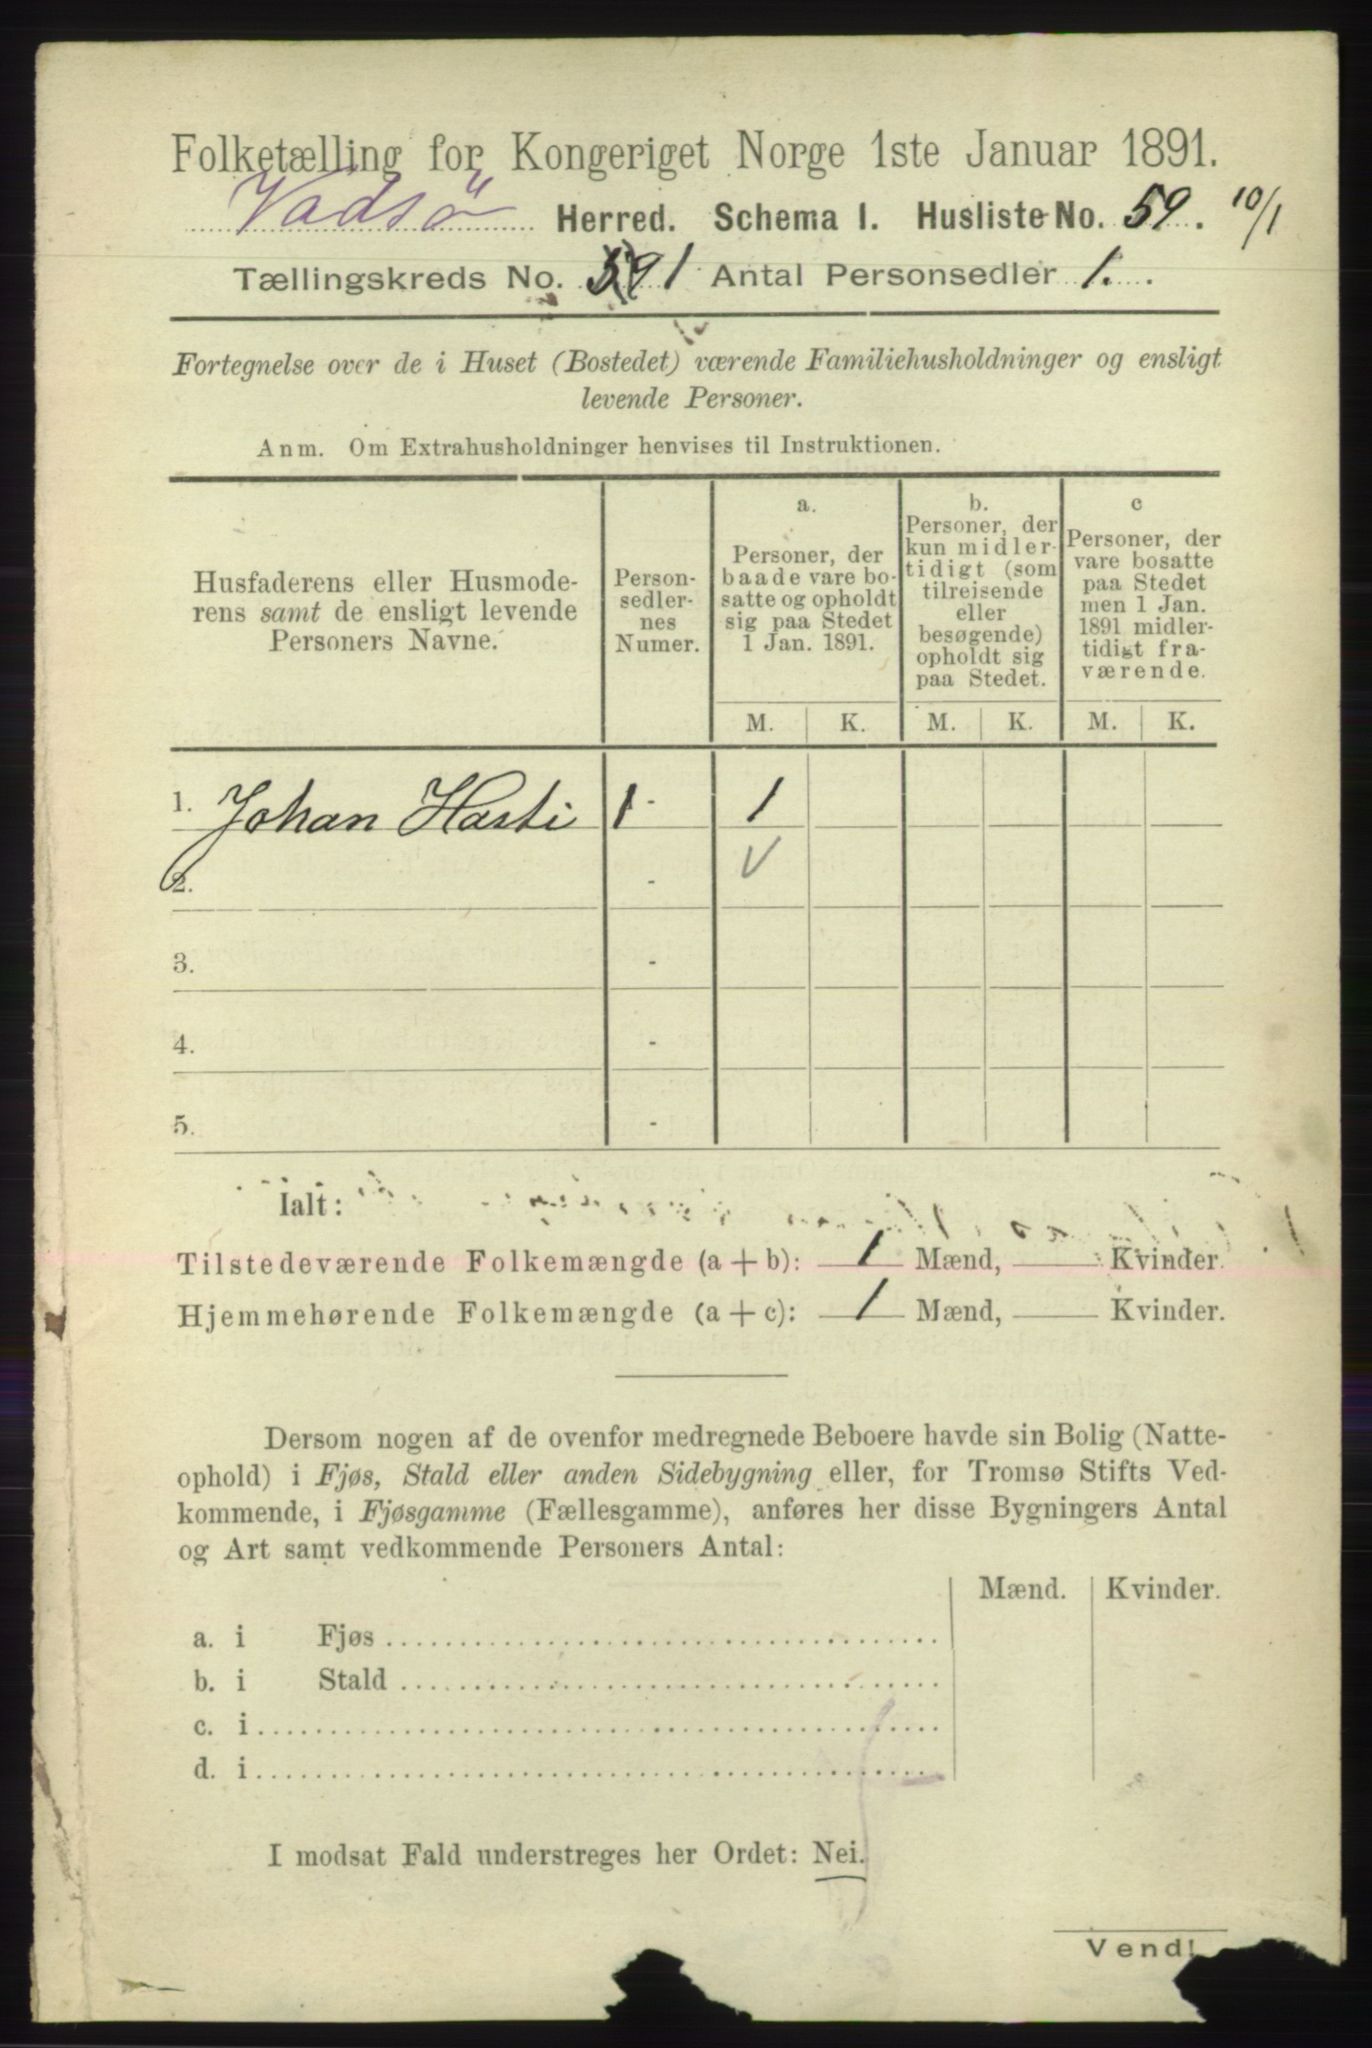 Folketælling for Kongeriget Norge 1ste Januar 1891.
Vadsö Herred. Schema I. Husliste No. 59. 10/1
Tællingskreds No. 59 1 Antal Personsedler 1.
Fortegnelse over de i Huset (Bostedet) værende Familiehusholdninger og ensligt
levende Personer.
Anm. Om Extrahusholdninger henvises til Instruktionen.
Husfaderens eller Husmode-
rens samt de ensligt levende
Personers Navne.
Person-
sedler-
nes
Numer.
a.
Personer, der
baade vare bo-
satte og opholdt
sig paa Stedet
1 Jan. 1891.
b.
Personer, der
kun midler-
tidigt (som
tilreisende
eller
besøgende)
opholdt sig
paa Stedet.
c
Personer, der
vare bosatte
paa Stedet
men 1 Jan.
1891 midler-
tidigt fra-
værende.
M. K. M. K. M. K.
1. Johan Hasti 1 - 1
2. - V
3. -
4. -
5. -
Ialt:
Tilstedeværende Folkemængde (a + b): 1 Mænd, Kvinder.
Hjemmehørende Folkemængde (a + c): 1 Mænd, Kvinder.
Dersom nogen af de ovenfor medregnede Beboere havde sin Bolig (Natte-
ophold) i Fjøs, Stald eller anden Sidebygning eller, for Tromsø Stifts Ved-
kommende, i Fjøsgamme (Fællesgamme), anføres her disse Bygningers Antal
og Art samt vedkommende Personers Antal:
Mænd. Kvinder.
a. i Fjøs
b. i Stald
c. i
d. i
I modsat Fald understreges her Ordet: Nei.
Vend!